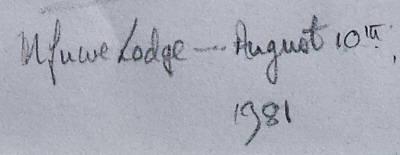 Mfuwe Lodge --- August 10th,
1981